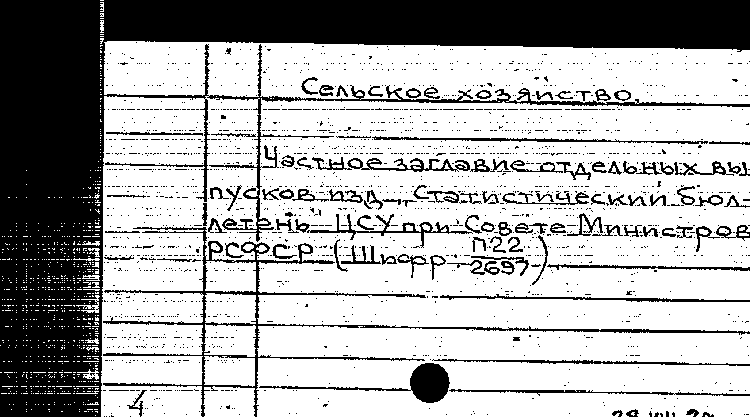 Сельское хозяйство.
Частное заглавие отдельных вы-
пусков изд. „Статистический бюл-
летень" ЦСУ при Совете Министров
РСФСР (Шифр П22/2697).
4